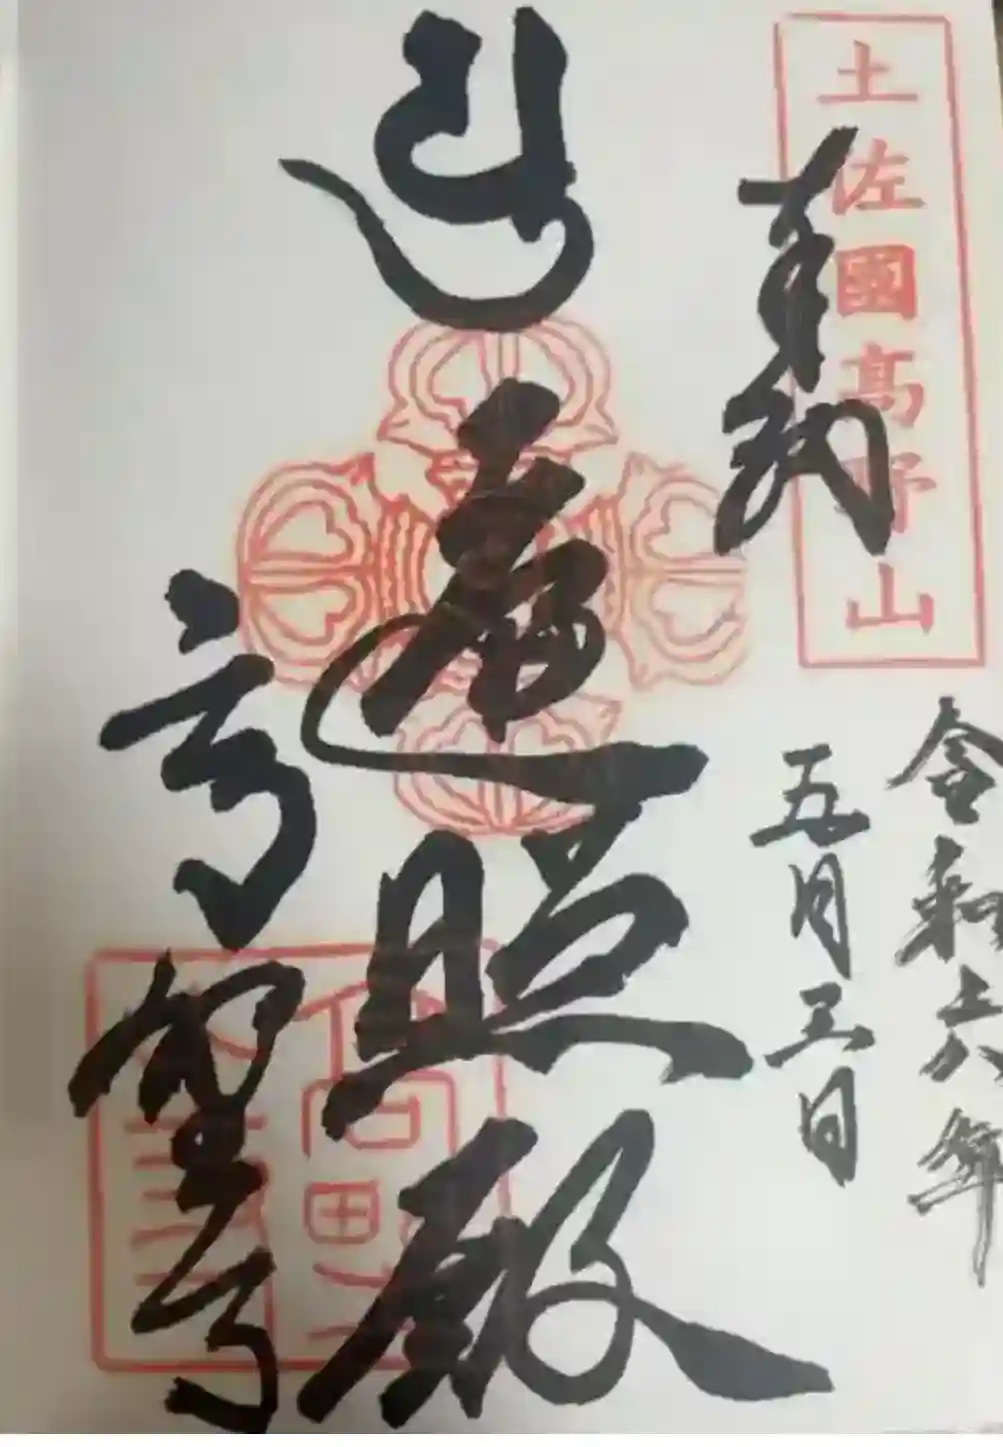 土佐國高野山
奉納
令和六年
五月三日
遍照殿
高野寺